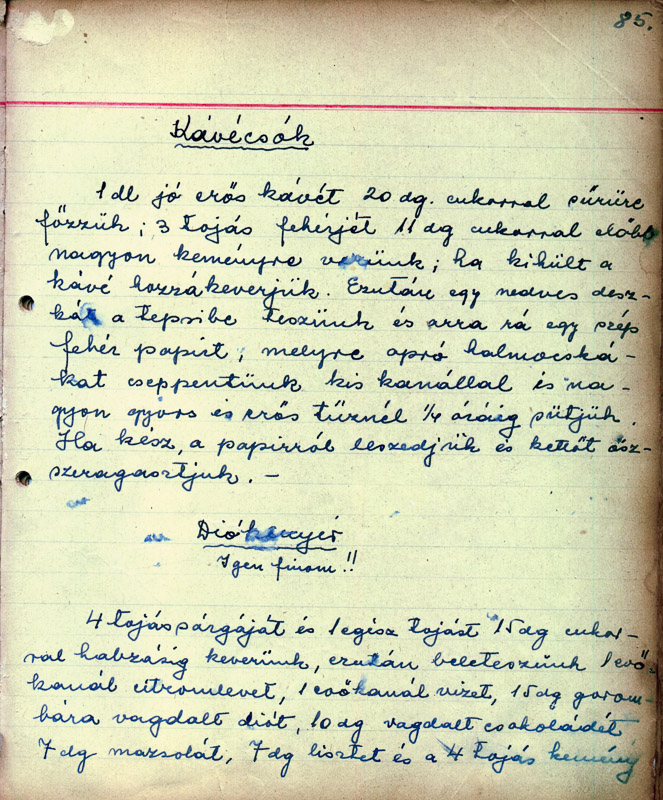 85.
Kávécsók
1 dl jó erős kávét 20 dg. cukorral sűrűre
főzzük; 3 tojás fehérjét 11 dg cukorral előbb
nagyon keményre verünk; ha kihült a
kávé hozzákeverjük. Ezután egy nedves desz-
kát a tepsibe teszünk és arra rá egy szép
fehér papírt, melyre apró halmocská-
kat cseppentünk kis kanállal és na-
gyon gyors és erős tűznél 1/4 óráig sütjük.
Ha kész, a papírról leszedjük és kettőt ösz-
szeragasztjuk. –
Diókenyér
Igen finom!!
4 tojás sárgáját és 1 egész tojást 15 dg cukor-
ral habzásig keverünk, ezután beleteszünk 1 evő-
kanál citromlevet, 1 evőkanál vizet, 15 dg gorom-
bára vagdalt diót, 10 dg vagdalt csokoládét
7 dg mazsolát, 7 dg lisztet és a 4 tojás kemény